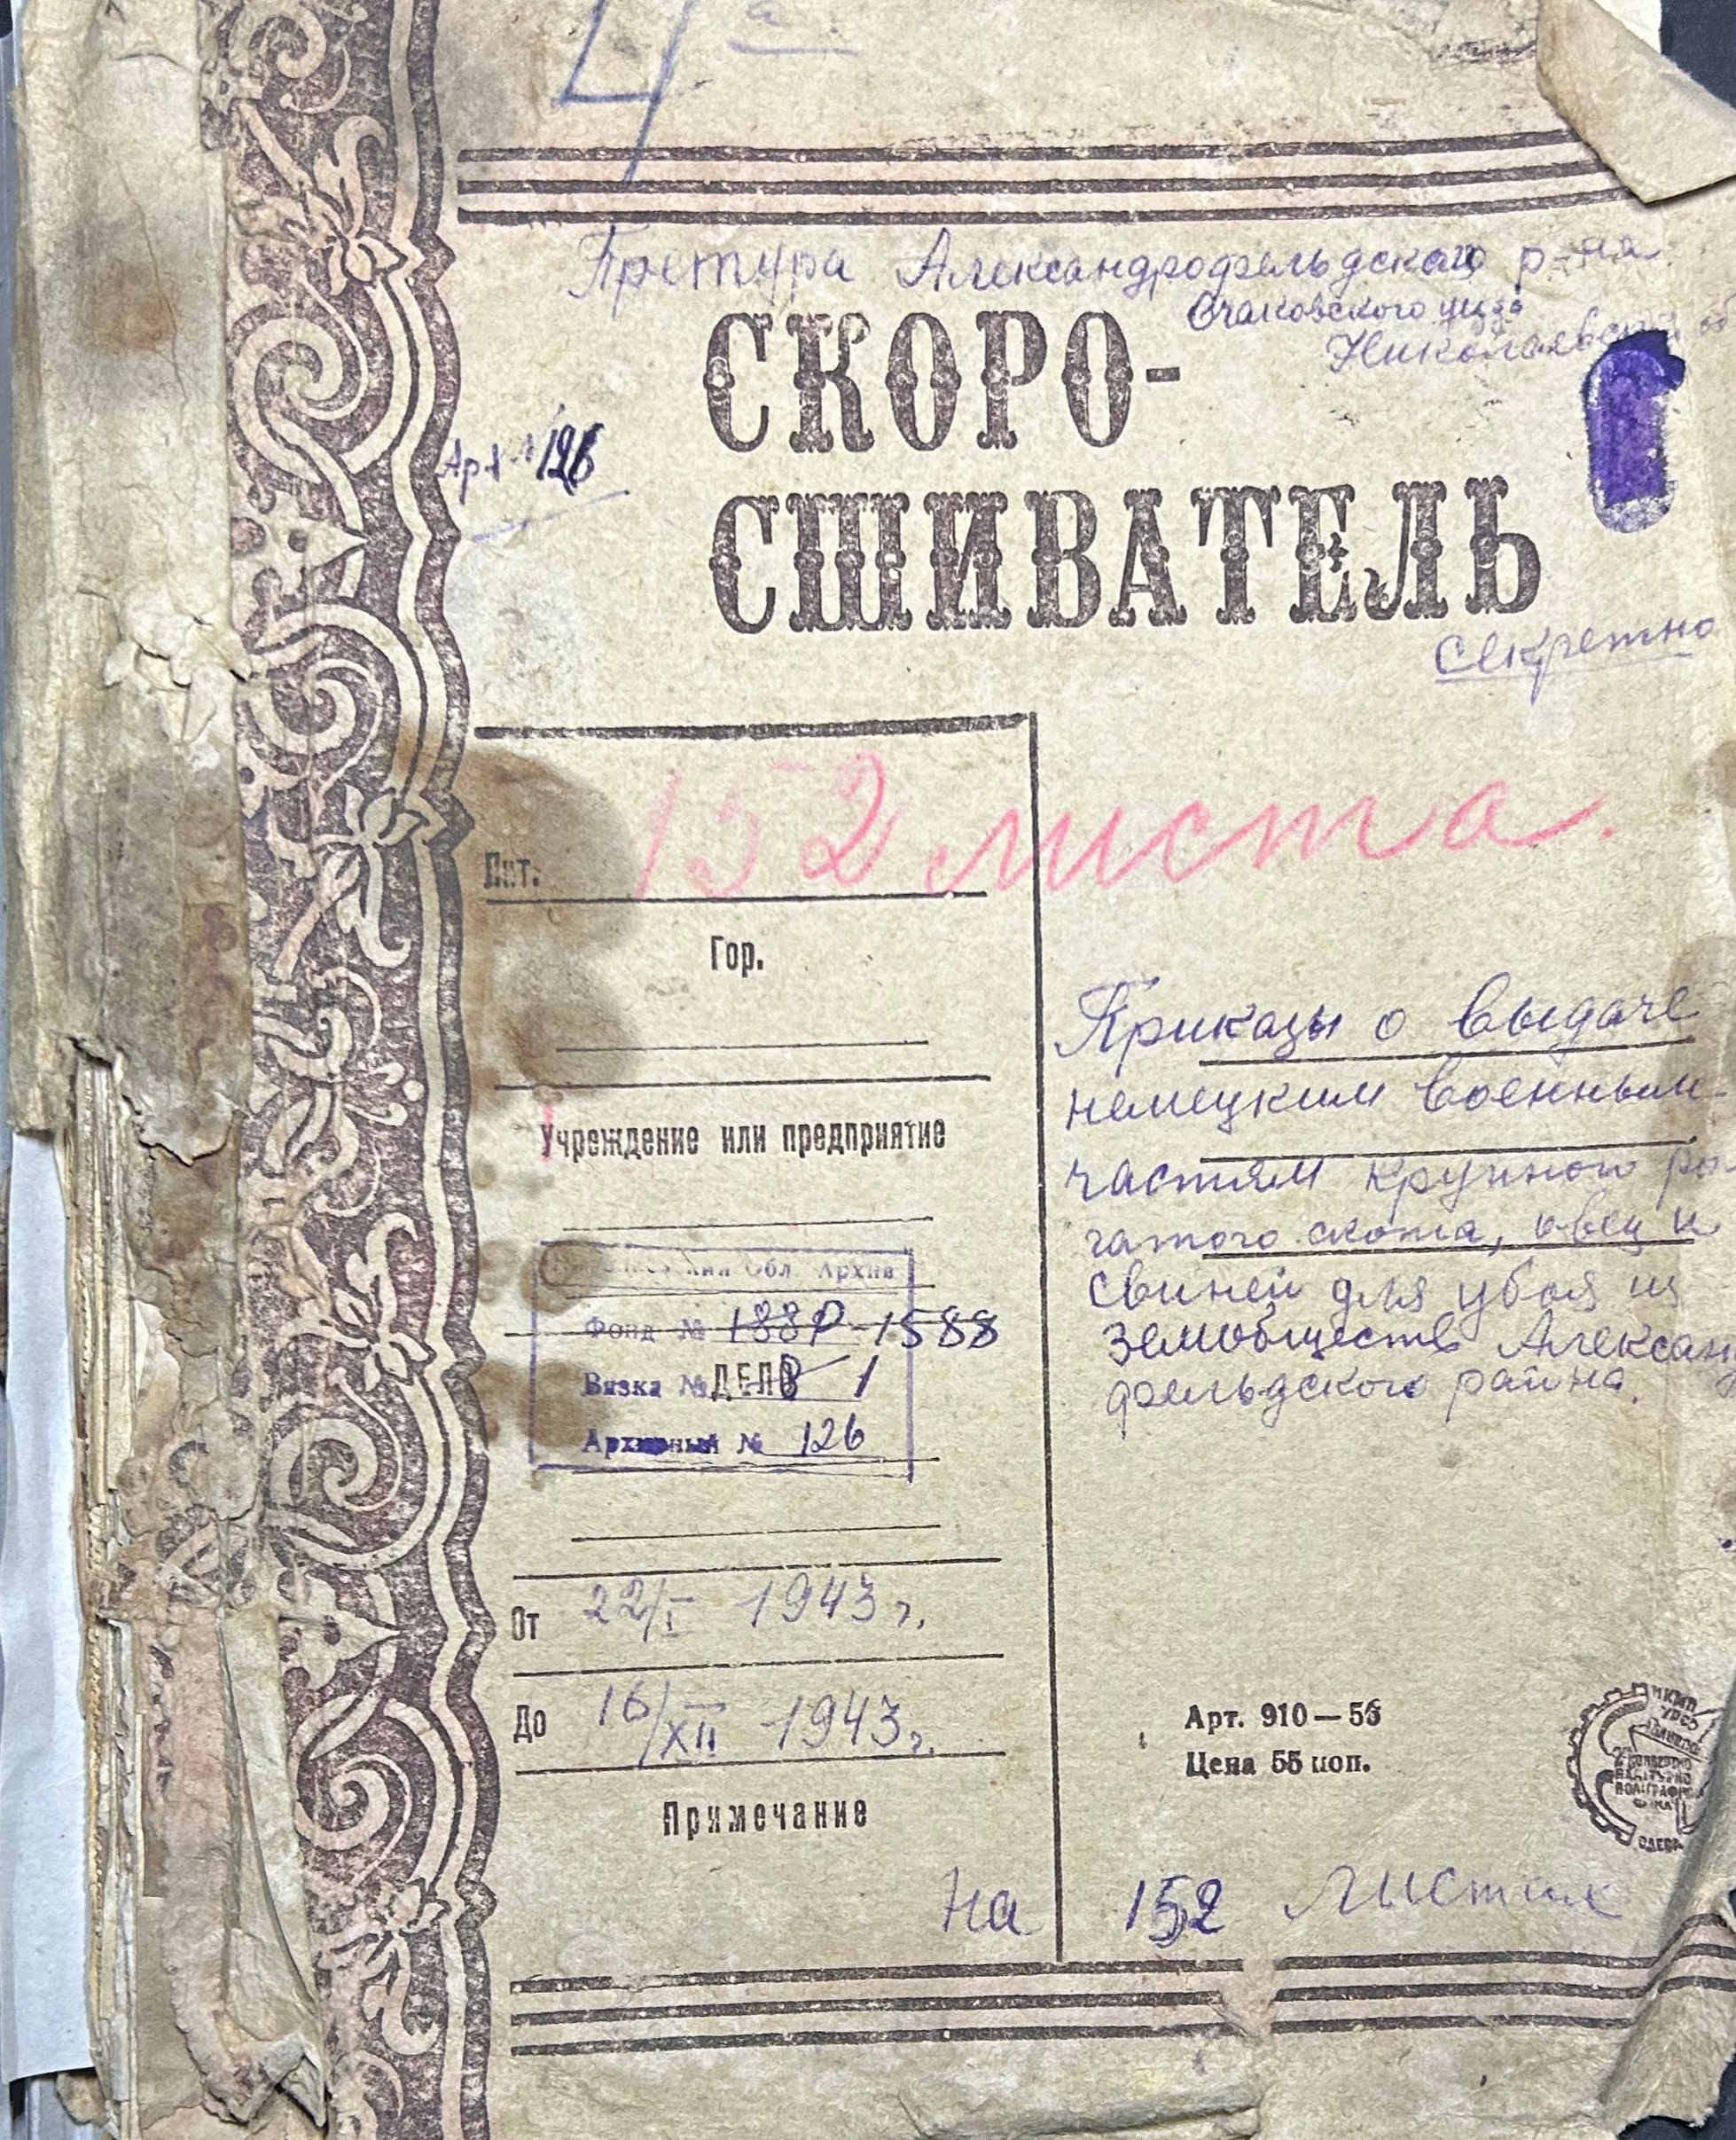 4а
Претура Александрофельдского р-на
Очаковского уезда
Николаевской об
СКОРО-
Арх № 126
СШИВАТЕЛЬ
Секретно
152 листа.
Пит.
Гор.
Приказы о выдаче
немецким военным
частям крупного ро
гатого скота, овец и
свиней для убоя из
земобществ Александ
фельдского района.
Учреждение или предприятие
Обл. Архив
Фонд № 188Р-1588
Вязка № ДЕЛО 1
Архивный № 126
От 22/I 1943 г.
До 16/XII 1943 г.
Арт. 910—56
Цена 55 коп.
НКМП
УРСР
Примечание
На 152 листах